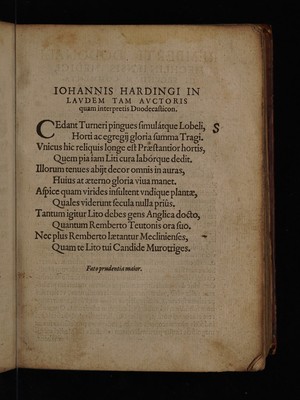 IOHANNIS HARDINGI IN
LAVDEM TAM AVCTORIS
quam interpretis Duodecasticon.
CEdant Turneri pingues simulátque Lobeli,
Horti ac egregij gloria summa Tragi.
Vnicus hic reliquis longe est Præstantior hortis,
Quem pia iam Liti cura labórque dedit.
Illorum tenues abijt decor omnis in auras,
Huius at æterno gloria viua manet.
Aspice quam virides insultent vndique plantæ,
Quales viderunt secula nulla priùs.
Tantum igitur Lito debes gens Anglica docto,
Quantum Remberto Teutonis ora suo.
Nec plus Remberto lætantur Meclinienses,
Quam te Lito tui Candide Murotriges.
Fato prudentia maior.